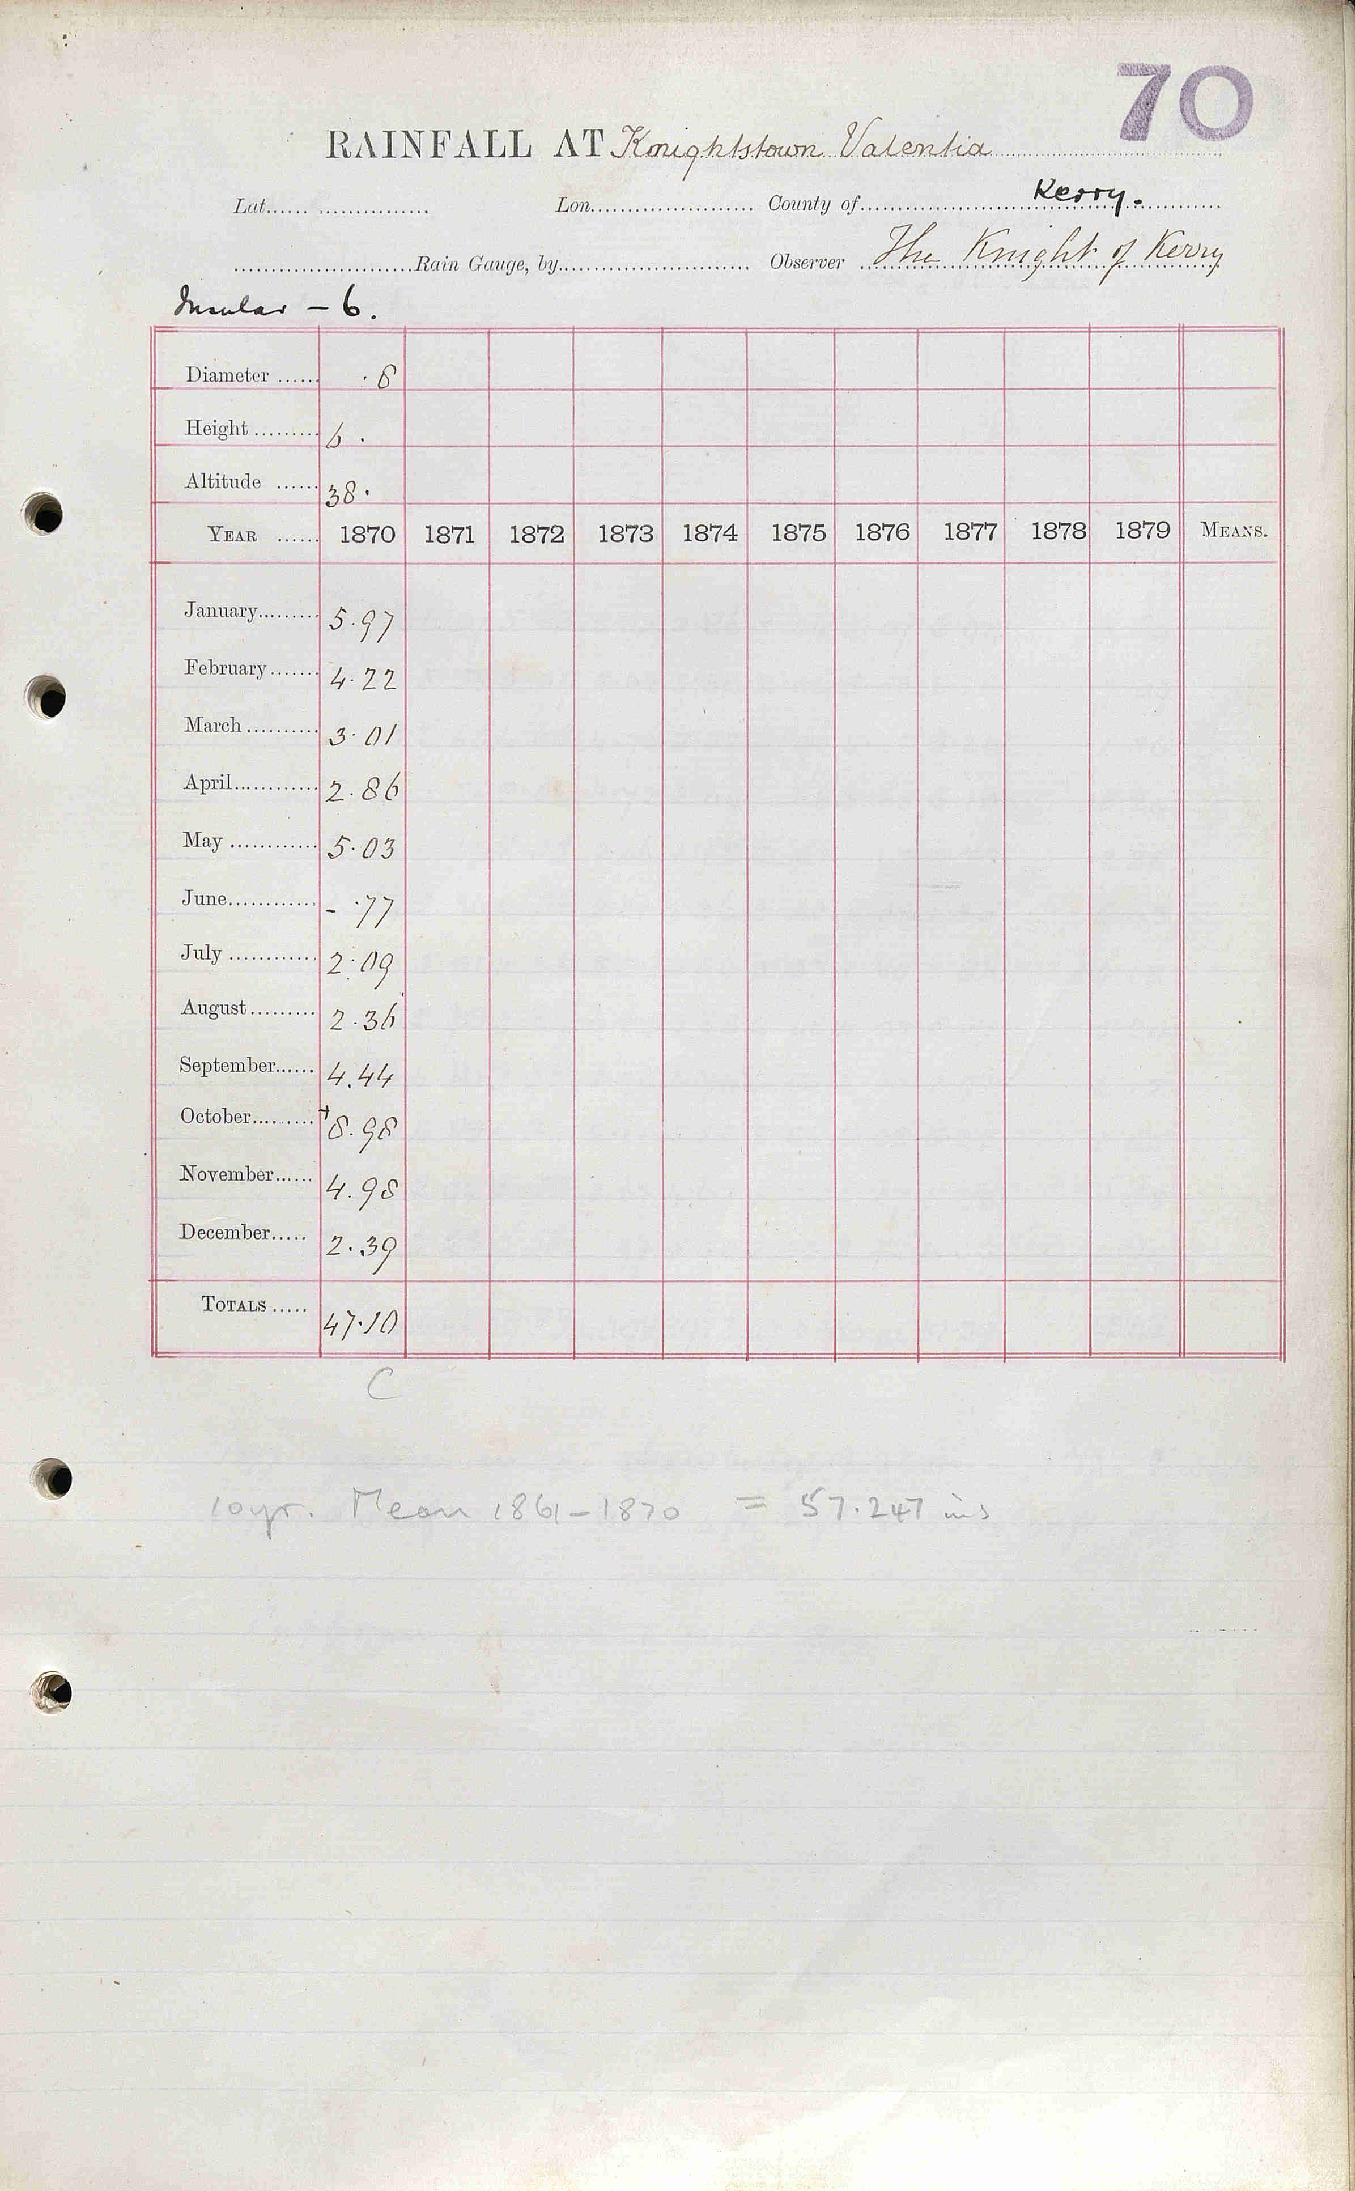 70
RAINFALL AT Knightstown Valentia
Lat. Lon. County of Kerry.
Rain Gauge, by Observer The Knight of Kerry
Insular – 6.
Diameter ...... .8
Height ......... 6.
Altitude ...... 38.
YEAR ...... 1870 1871 1872 1873 1874 1875 1876 1877 1878 1879 MEANS.
January......... 5.97
February....... 4.22
March .......... 3.01
April............ 2.86
May ............ 5.03
June............ - .77
July ............ 2.09
August ......... 2.36
September...... 4.44
October......... +8.98
November...... 4.98
December..... 2.39
TOTALS ..... 47.10
C
10yr. Mean 1861–1870 = 57.247 ins